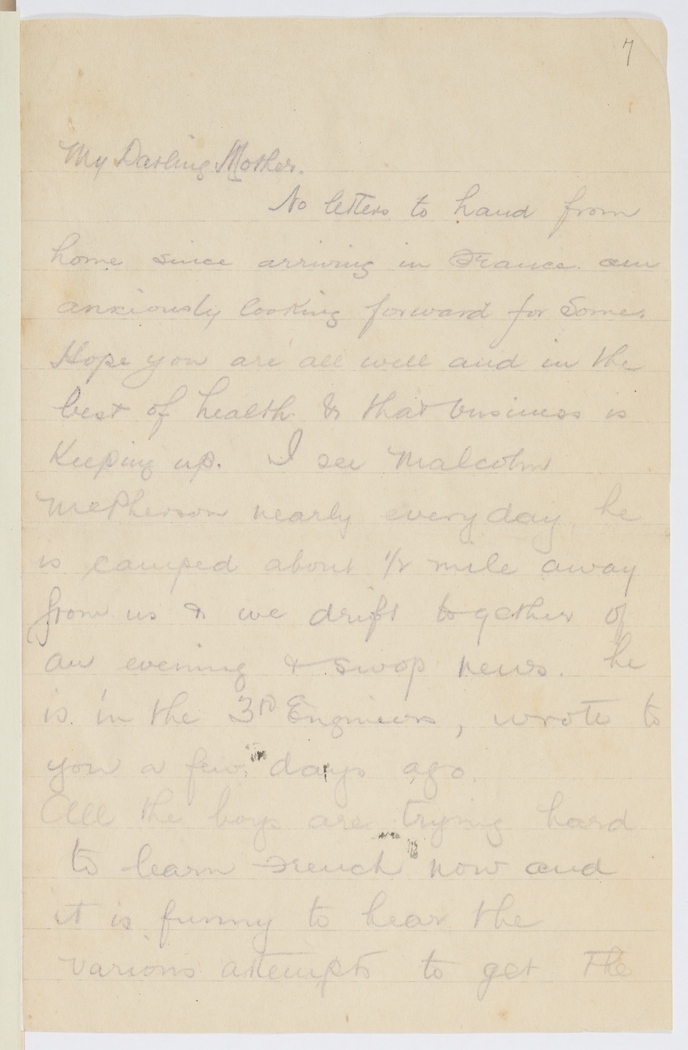 7
My Darling Mother.
No letters to hand from
home since arriving in France. am
anxiously looking forward for Some.
Hope you are all well and in the
best of health & that business is
Keeping up. I see Malcolm
McPherson nearly every day, he
is camped about 1/2 mile away
from us & we drift together of
an evening & swop news. he
is in the 3rd Engineers, wrote to
you a few days ago.
All the boys are trying hard
to learn French now and
it is funny to hear the
various attempts to get the